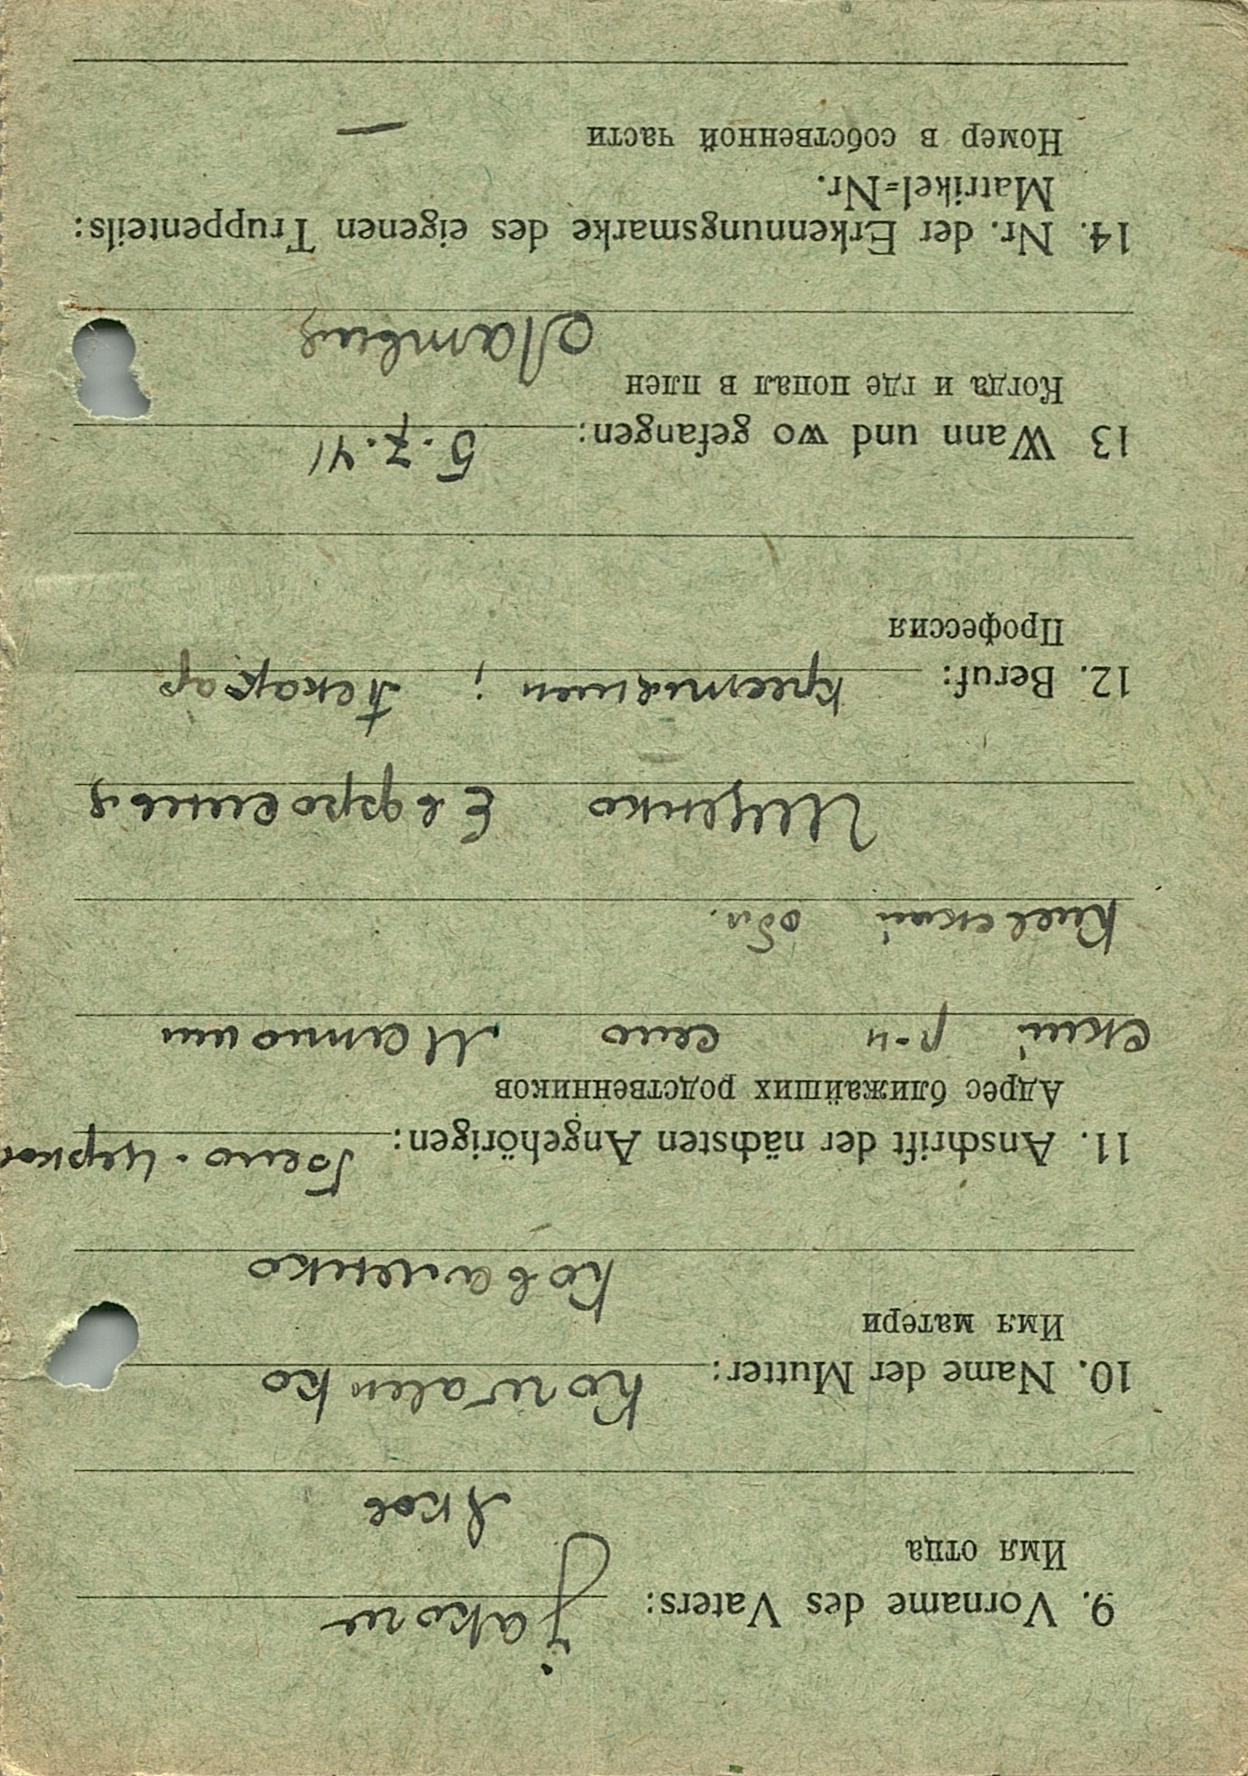 9. Vorname des Vaters: Jakow
Имя отца
Яков
10. Name der Mutter: Kowalenko
Имя матери
Коваленко
11. Anschrift der nächsten Angehörigen: Бело-Церков
Адрес ближайших родственников
ский р-н село
Киевской обл.
Ищенко Евфросинья
12. Beruf: крестьянин; пекарь
Профессия
13 Wann und wo gefangen: 5.7.41
Когда и где попал в плен
Латвия
14. Nr. der Erkennungsmarke des eigenen Truppenteils:
Matrikel=Nr.
Номер в собственной части —